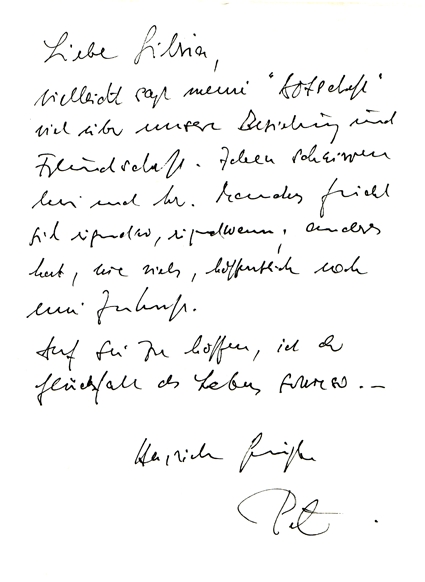 Liebe Silvia,
vielleicht sagt meine "Botschaft"
viel über unsere Beziehung und
Freundschaft. schwirren
hin und her. Manches
sich irgendwo, irgendwann, anderes
hat, wie vieles, hoffentlich noch
eine Zukunft.
Auf Sie zu hoffen, ist der
Glücksfall des Lebens sowieso. —
Herzliche Grüße